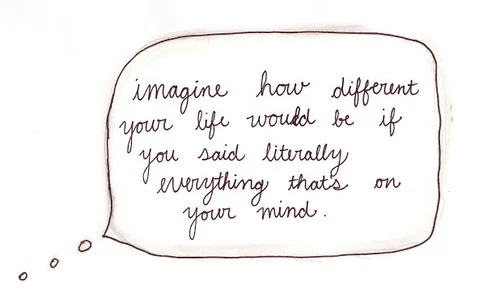 imagine how different
your life would be if
you said literally
everything thats on
your mind.